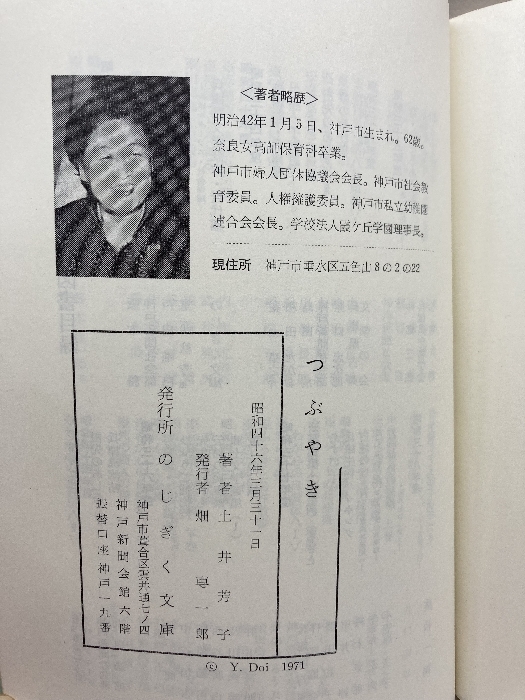 ＜著者略歴＞
明治42年1月5日、神戸市生まれ。62歳。
奈良女高師保育科卒業。
神戸市婦人団体協議会会長。神戸市社会教
育委員。人権擁護委員。神戸市私立幼稚園
連合会会長。学校法人霞ケ丘学園理事長。
現住所　神戸市垂水区五色山8の2の22
つぶやき
昭和四十六年三月三十一日
著者　土井芳子
発行者　畑　専一郎
発行所　のじぎく文庫
神戸市葺合区雲井通七ノ四
神戸新聞会館六階
振替口座神戸一九番
© Y. Doi 1971